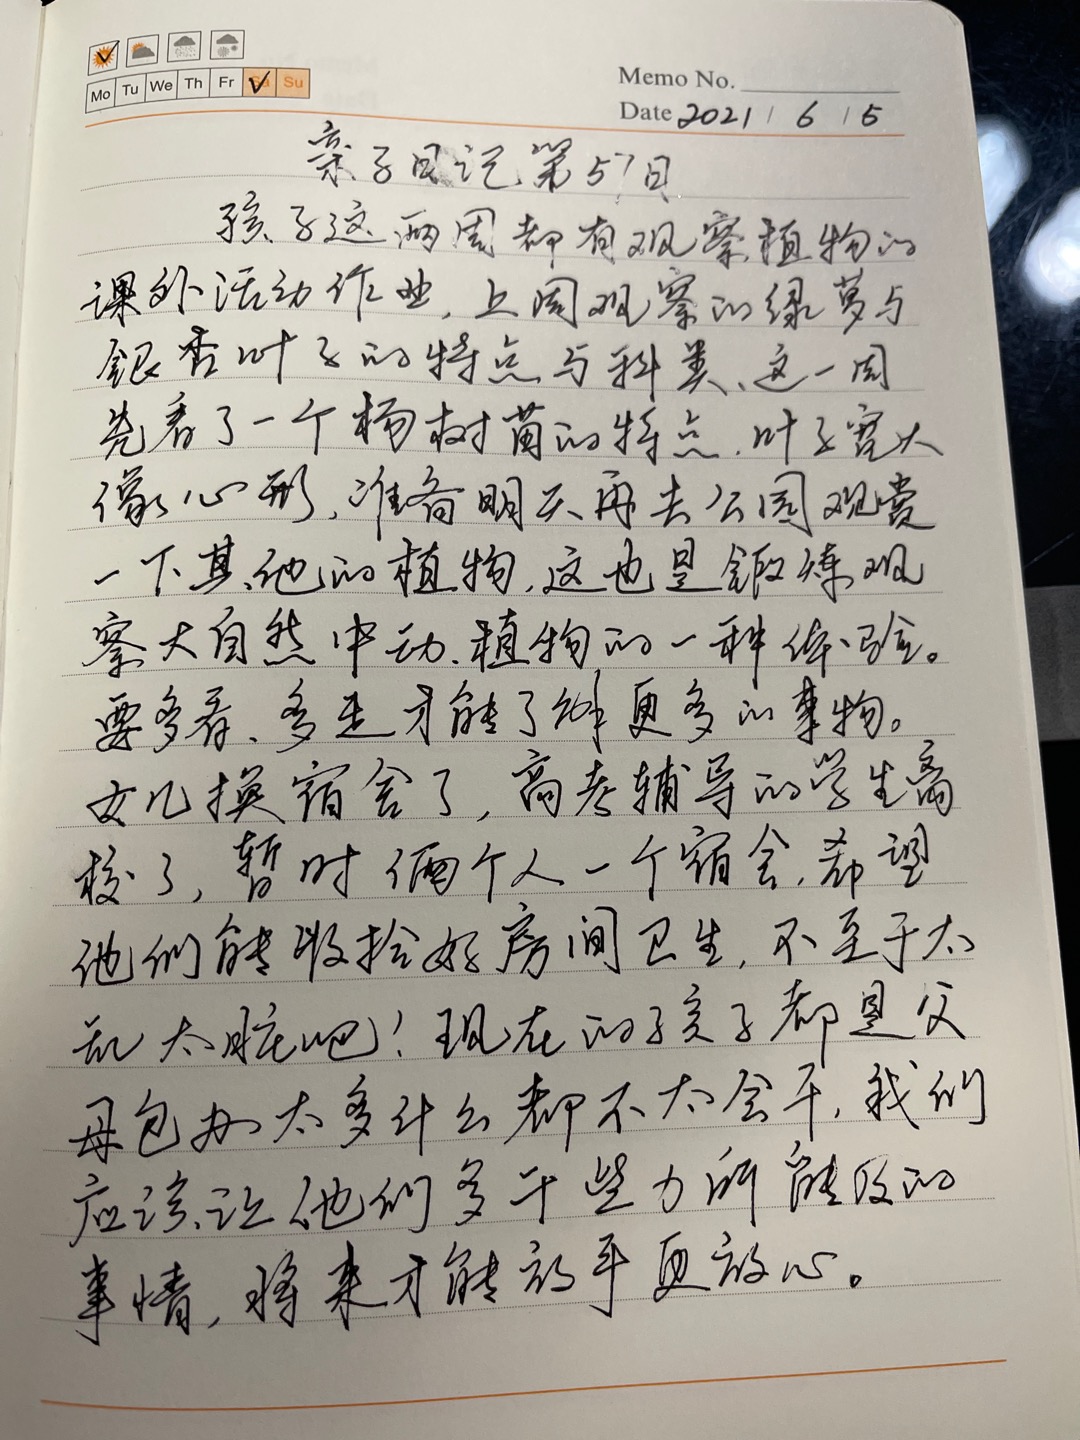 Mo Tu We Th Fr Sa Su
Memo No.
Date 2021 / 6 / 5
亲子日记第57日
孩子这两周都有观察植物的
课外活动作业,上周观察的绿萝与
银杏叶子的特点与科类、这一周
先看了一个杨树苗的特点.叶子宽大
像心形,准备明天再去公园观赏
一下其他的植物,这也是锻炼观
察大自然中动、植物的一种体验。
要多看、多走才能了解更多的事物。
女儿换宿舍了,高考辅导的学生离
校了,暂时俩个人一个宿舍,希望
他们能收拾好房间卫生,不至于太
乱太脏吧!现在的孩子都是父
母包办太多什么都不太会干,我们
应该让他们多干些力所能及的
事情,将来才能放手更放心。